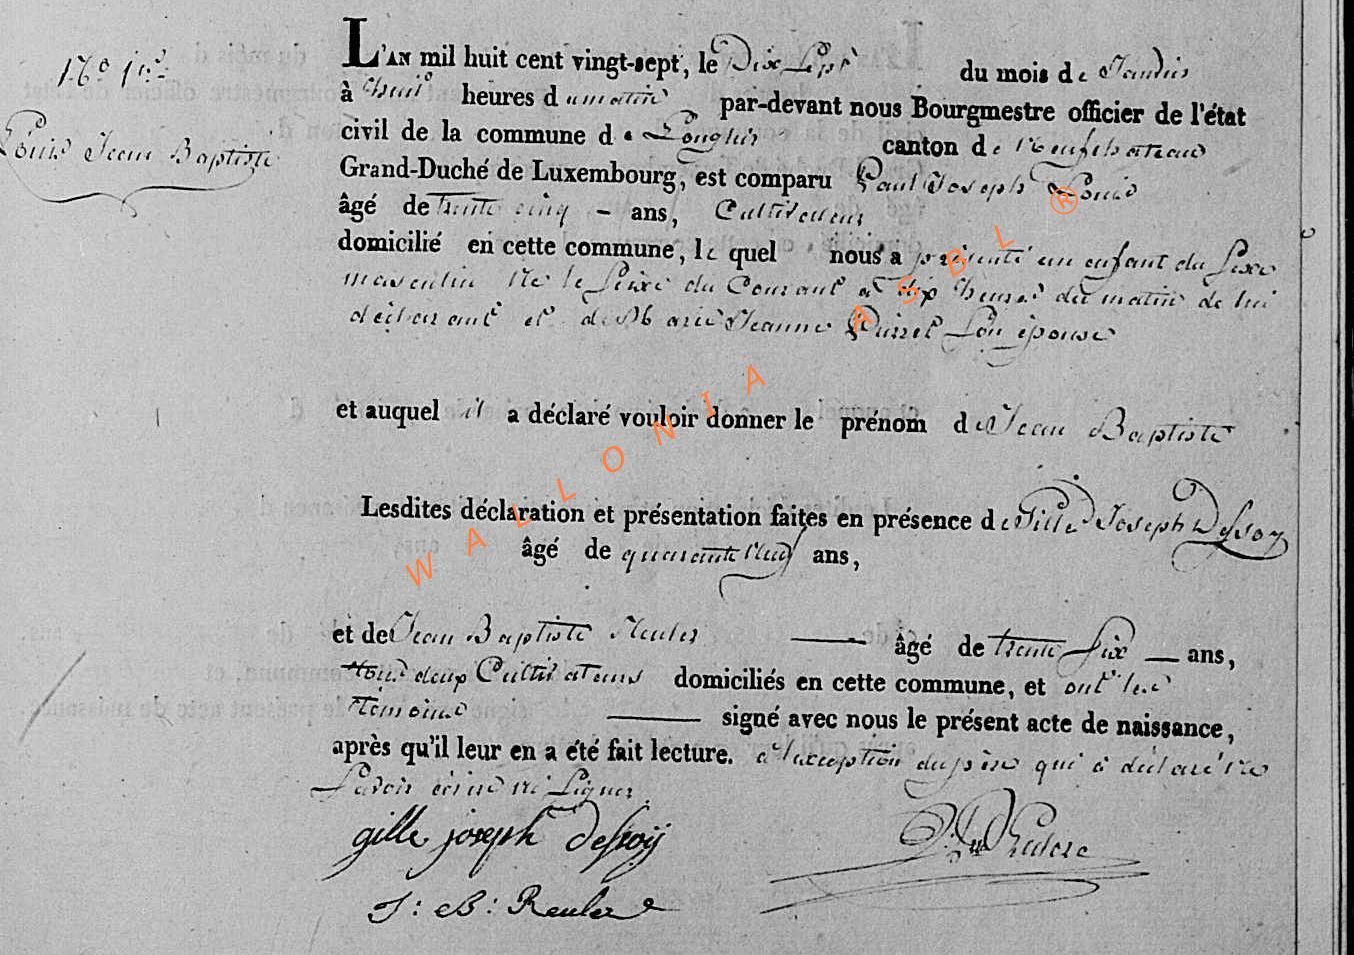 N.o 1er
Louis Jean Baptiste
L'AN mil huit cent vingt-sept, le Dix Sept du mois de Janvier
à huit heures du matin par-devant nous Bourgmestre officier de l'état
civil de la commune de Longlier canton de Neufchateau
Grand-Duché de Luxembourg, est comparu Paul Joseph Louis
âgé de trente cinq - ans, Cultivateur
domicilié en cette commune, le quel nous a présenté un enfant du Sexe
masculin Né le Seize du Courant à dix heures du matin de lui
déclarant et de Marie Jeanne Son épouse
et auquel il a déclaré vouloir donner le prénom de Jean Baptiste
Lesdites déclaration et présentation faites en présence de Gille Joseph Dessoy
âgé de quarante neuf ans,
et de Jean Baptiste Reuler âgé de trente Six — ans,
tous deux Cultivateurs domiciliés en cette commune, et ont les
témoins signé avec nous le présent acte de naissance,
après qu'il leur en a été fait lecture. à l'exception du père qui a déclaré ne
Savoir écrire ni Signer.
gille joseph Dessoy
J: B: Reuler
WALLONIA ASBL ®